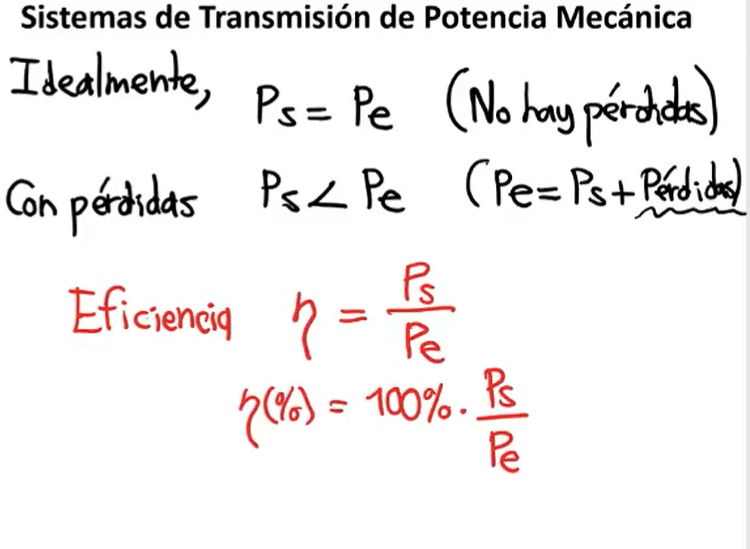 Sistemas de Transmisión de Potencia Mecánica
Idealmente, Ps = Pe (No hay pérdidas)
Con pérdidas Ps < Pe (Pe = Ps + Pérdidas)
Eficiencia η = Ps / Pe
η(%) = 100% · Ps / Pe